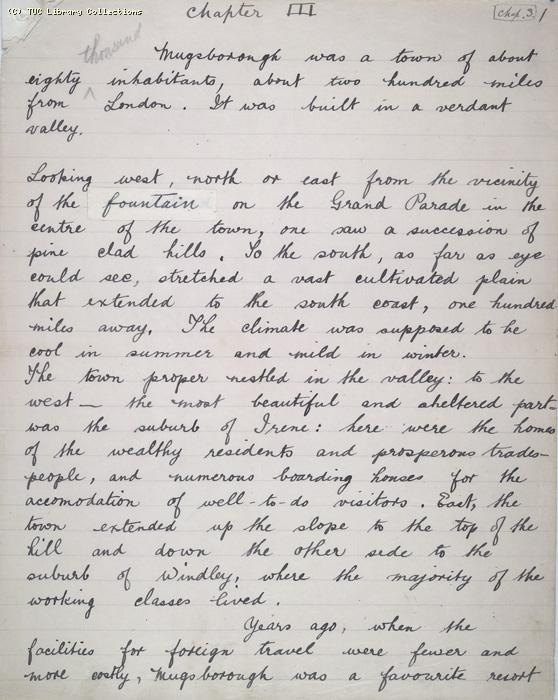 (C) TUC Library Collections
Chapter III
Chap. 3. 1
thousand
Mugsborough was a town of about
eighty ^ inhabitants, about two hundred miles
from London. It was built in a verdant
valley.
Looking west, north or east from the vicinity
of the fountain on the Grand Parade in the
centre of the town, one saw a succession of
pine clad hills. To the south, as far as eye
could see, stretched a vast cultivated plain
that extended to the south coast, one hundred
miles away. The climate was supposed to be
cool in summer and mild in winter.
The town proper nestled in the valley: to the
west — the most beautiful and sheltered part—
was the suburb of Irene: here were the homes
of the wealthy residents and prosperous trades-
people, and numerous boarding houses for the
accomodation of well-to-do visitors. East, the
town extended up the slope to the top of the
hill and down the other side to the
suburb of Windley, where the majority of the
working classes lived.
Years ago, when the
facilities for foreign travel were fewer and
more costly, Mugsborough was a favourite resort